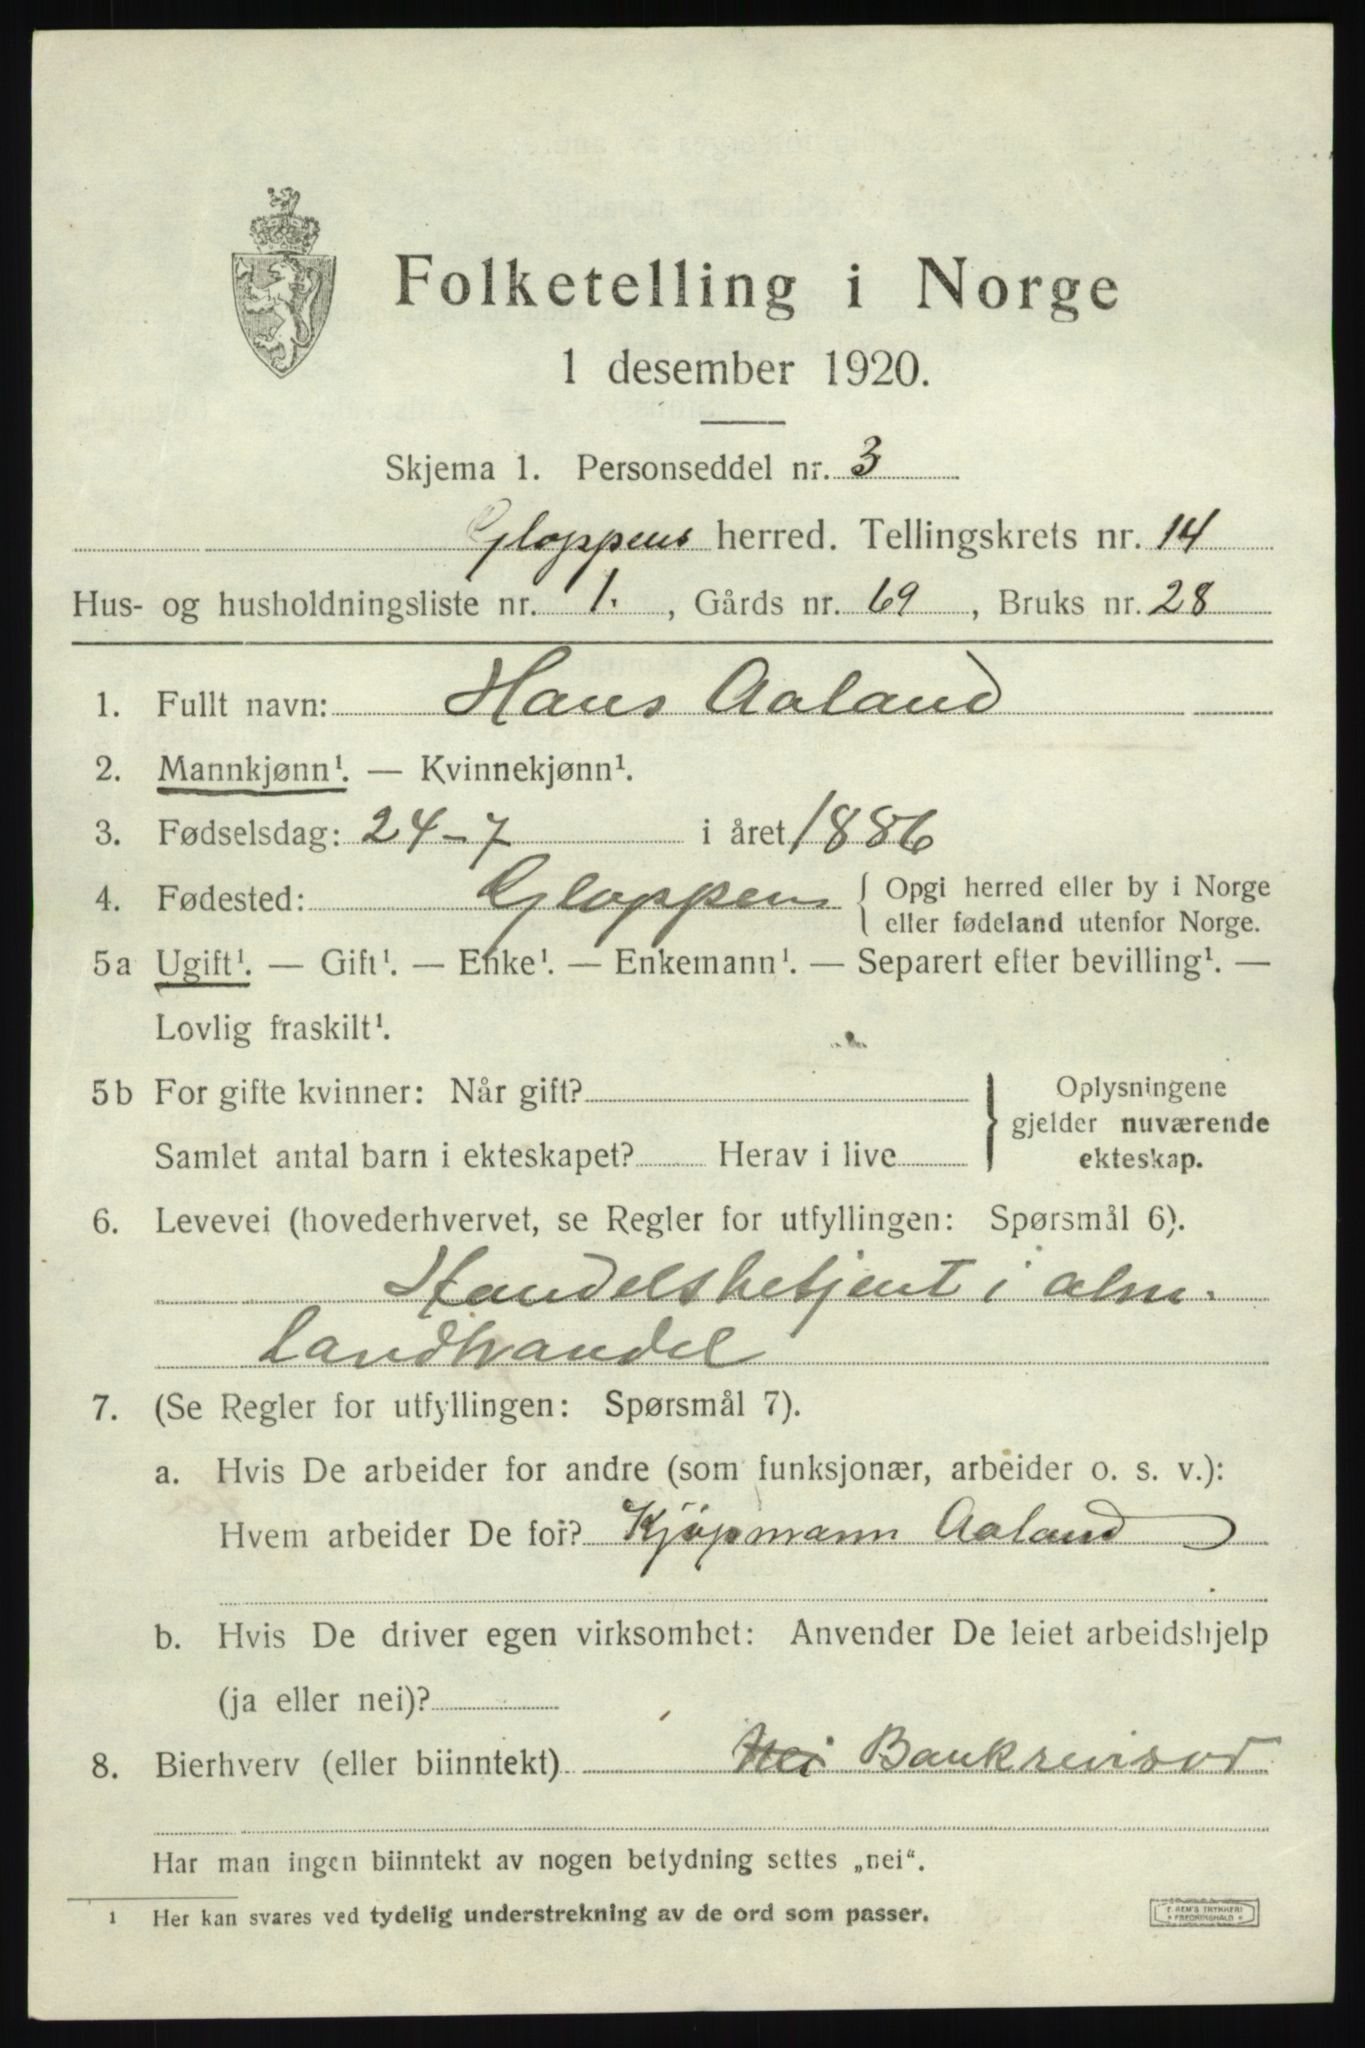 Folketelling i Norge
1 desember 1920.
Skjema 1. Personseddel nr. 3
Gloppens herred. Tellingskrets nr. 14
Hus- og husholdningsliste nr. 1. , Gårds nr. 69 , Bruks nr. 28
1. Fullt navn: Hans Aaland
2. Mannkjønn¹. — Kvinnekjønn¹.
3. Fødselsdag: 24-7 i året 1886
4. Fødested: Gloppen { Opgi herred eller by i Norge
eller fødeland utenfor Norge.
5a Ugift¹. — Gift¹. — Enke¹. — Enkemann¹. — Separert efter bevilling¹. —
Lovlig fraskilt¹.
5b For gifte kvinner: Når gift?
Samlet antal barn i ekteskapet? Herav i live
Oplysningene
gjelder nuværende
ekteskap.
6. Levevei (hovederhvervet, se Regler for utfyllingen: Spørsmål 6).
Handelsbetjent i alm.
landhandel
7. (Se Regler for utfyllingen: Spørsmål 7).
a. Hvis De arbeider for andre (som funksjonær, arbeider o. s. v.):
Hvem arbeider De for? Kjøpmann Aaland
b. Hvis De driver egen virksomhet: Anvender De leiet arbeidshjelp
(ja eller nei)?
8. Bierhverv (eller biinntekt) Nei Bankrevisor
Har man ingen biinntekt av nogen betydning settes „nei“.
1 Her kan svares ved tydelig understrekning av de ord som passer.
F. REM'S TRYKKERI
FREDRIKSHALD